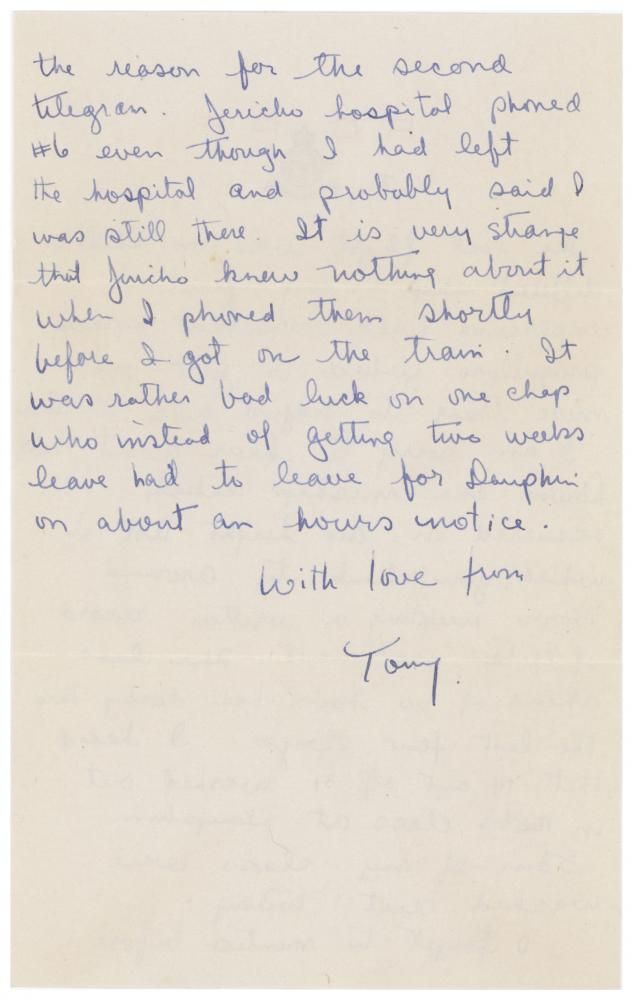 the reason for the second
telegram. Jericho hospital phoned
#6 even though I had left
the hospital and probably said I
was still there. It is very strange
that Jericho knew nothing about it
when I phoned them shortly
before I got on the train. It
was rather bad luck on one chap
who instead of getting two weeks
leave had to leave for Dauphin
on about an hours notice.
With love from
Tony.